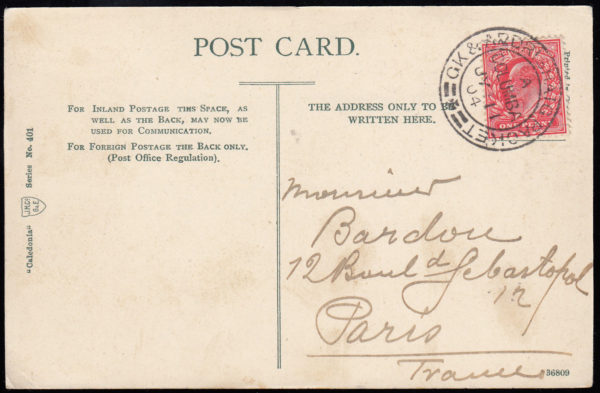 POST CARD.
FOR INLAND POSTAGE THIS SPACE, AS
WELL AS THE BACK, MAY NOW BE
USED FOR COMMUNICATION.
FOR FOREIGN POSTAGE THE BACK ONLY.
(Post Office Regulation).
THE ADDRESS ONLY TO BE
WRITTEN HERE.
"Caledonia" Series No. 401
ONE PENNY
COLUMBA
JY
04
Printed in
Monsieur
Bardou
12 Boul d Sebastopol
Paris
France
36809